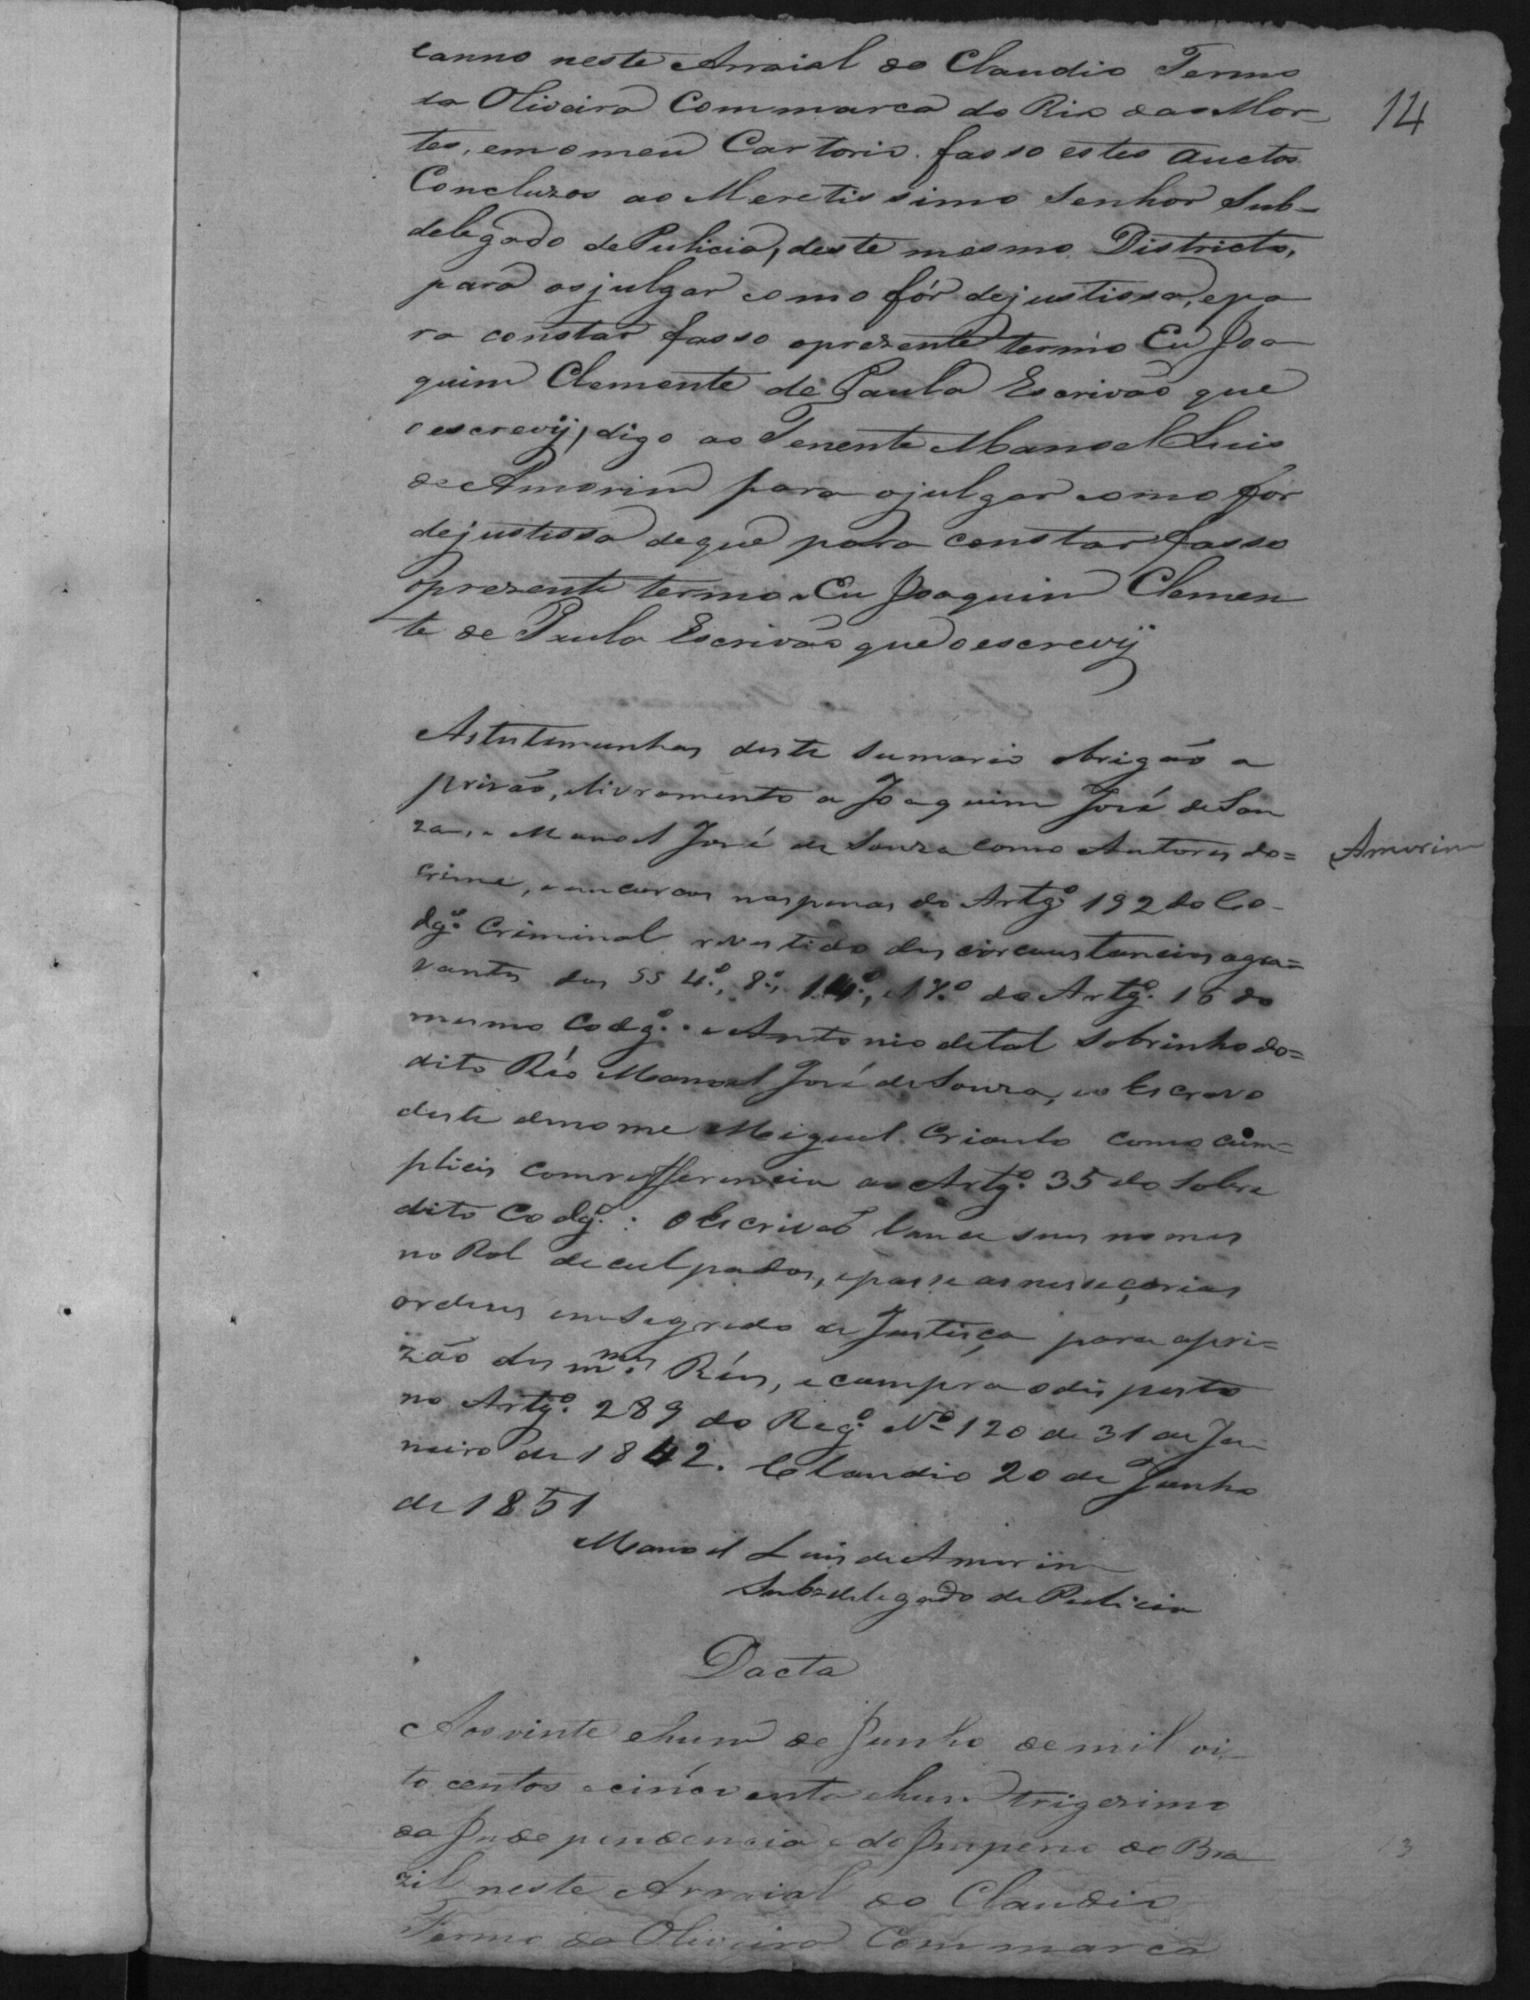 14
canno neste Arraial do Claudio Termo
da Oliveira Commarca do Rio das Mor-
tes, em o meu Cartorio. fasso estes auctos
Concluzos ao Meretissimo Senhor Sub-
delegado de Pulicia, deste mesmo Districto,
para os julgar como fôr dejustissa, epa
ra constar fasso oprezente termo Eu Joa
quim Clemente de Paula Escrivão que
o escrevij, digo ao Tenente Manoel Luis
de Amorim para ojulgar como for
dejustissa deque para constar fasso
oprezente termo. Eu Joaquim Clemen
te de Paula Escrivão que o escrevij
As testemunhas deste sumario obrigão a
prizão, elivramento a Joaquim José de Sou
za, e Manoel José de Souza como Autores do=
Amorim
crime, e incurços naspenas do Artgº. 192 do Co-
dgº. Criminal revestido das circunstancias agra=
vantes dos §§ 4º., 8º., 14º., e 17º. do Artgº. 16 do
mesmo Codgº. e Antonio detal sobrinho do=
dito Réo Manoel José de Souza, eo Escravo
deste denome Miguel Crioulo como cum=
plicis comrefferencia ao Artgº. 35 do Sobre
dito Codgº.: O Escrivão lance seus nomes
no Rol deculpados, epasse as nesseçarias
ordens emsegredo de Justiça para apri=
zão dos mmos. Réus, e cumpra odisposto
no Artgº. 289 do Regº. Nº 120 de 31 de Ja-
neiro de 1842. Claudio 20 de Junho
de 1851
Manoel Luis de Amorim
Subdelegado de Pulicia
Dacta
Aos vinte ehum de Junho de mil oi-
to centos e cincoenta ehum trigezimo
da Independencia e do Imperio do Bra
zil neste Arraial do Claudio
Termo da Oliveira Commarca